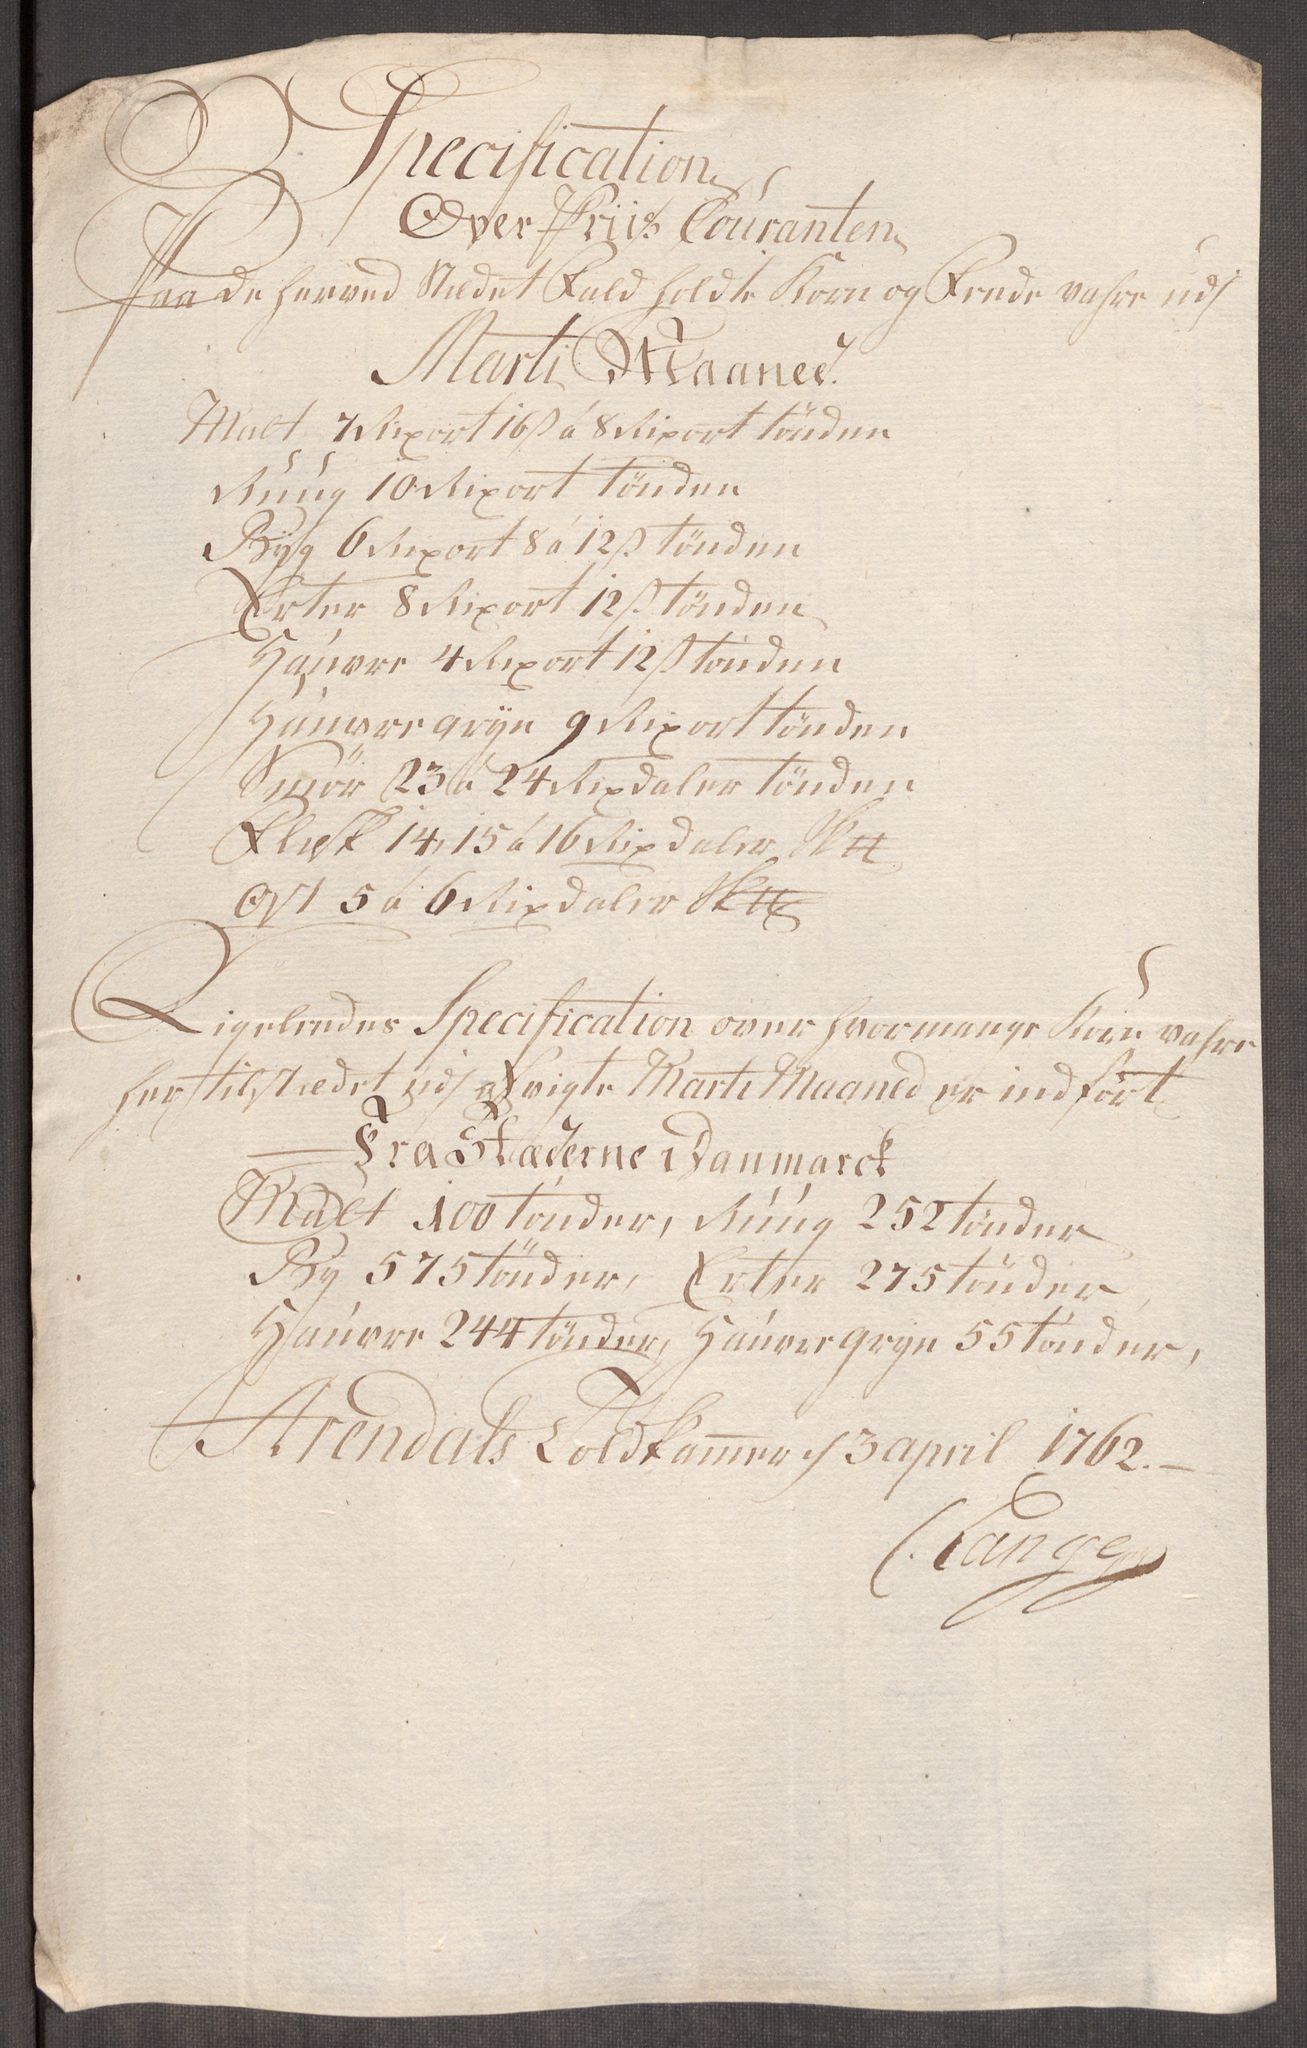 Specification
Over Priis Couranten
Paa de herved Stædet Fald holdte Korn og Fede vahre udj
Marti Maaned.
Malt 7 Rixort 16 ß á 8 Rixort tönden
Rúúg 10 Rixort tönden
Byg 6 Rixort 8 á 12 ß tönden
Erter 8 Rixort 12 ß tönden
Haúvre 4 Rixort 12 ß tönden
Haúvre gryn 9 Rixort tönden
Smör 23 á 24 Rixdaler tönden
Flesk 14, 15 á 16 Rixdaler Sk℔
Ost 5 á 6 Rixdaler Sk℔
Ligeleedes Specification over hvormange Korn vahre
her til Stædet udj Marti Maaned er indfört
Fra Stæderne i Danmarck
Malt 100 tönder, Rúúg 252 tönder
By 575 tönder, Erter 275 tönder,
Haúvre 244 tönder, Haúvre gryn 55 tönder,
Arendals Toldkammer d 3 april 1762.
C. Lange